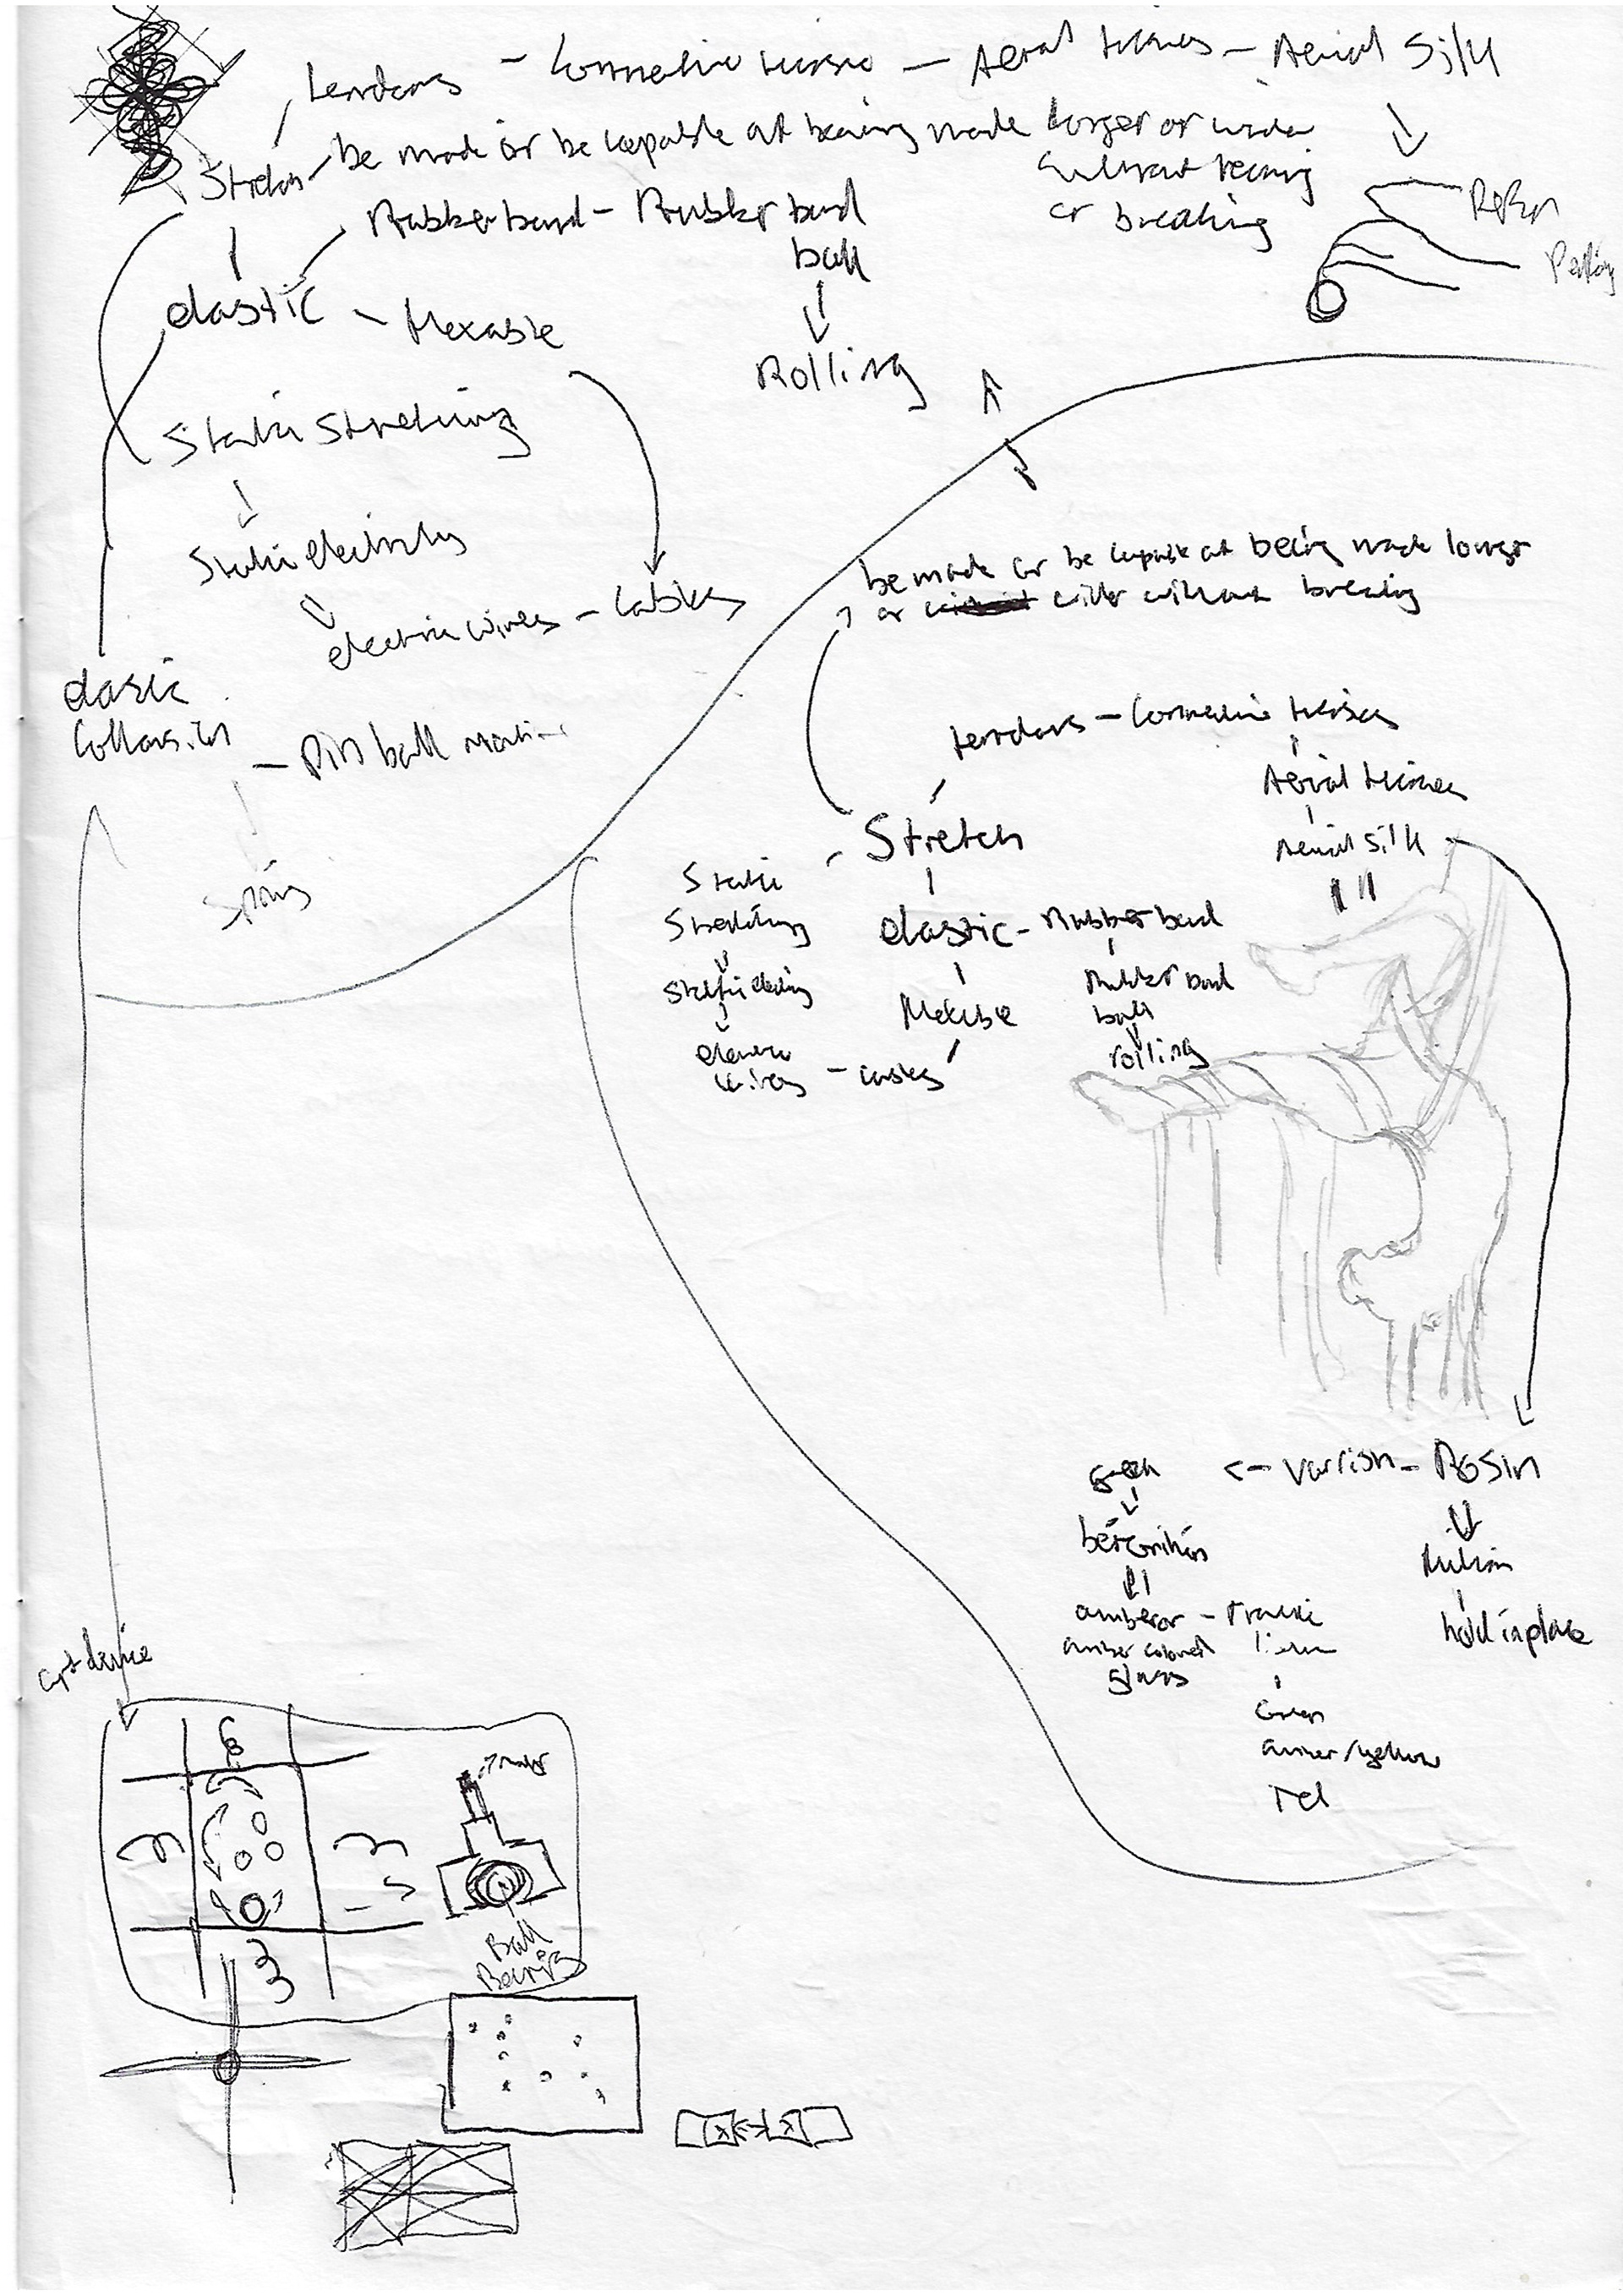 tendons - connective tissue - Aerial tissues - Aerial Silk
Stretch - be made or be capable of being made longer or wider
without tearing
or breaking
Rubber band - Rubber band
ball
Rolling
elastic - flexable
Static Stretching
Static electricity
electric wires - cables
elastic
collision
- Pin ball machine
Spring
be made or be capable of being made longer
or wider without breaking
tendons - connective tissues
Aerial tissues
Aerial Silk
Stretch
Static
Stretching
Static
electric
wires - cables
elastic - Rubber band
Rubber band
ball
rolling
<- varnish - Rosin
amber or - traffic
amber colored
glass
hold in place
Green
amber/yellow
red
device
Ball
Bearing